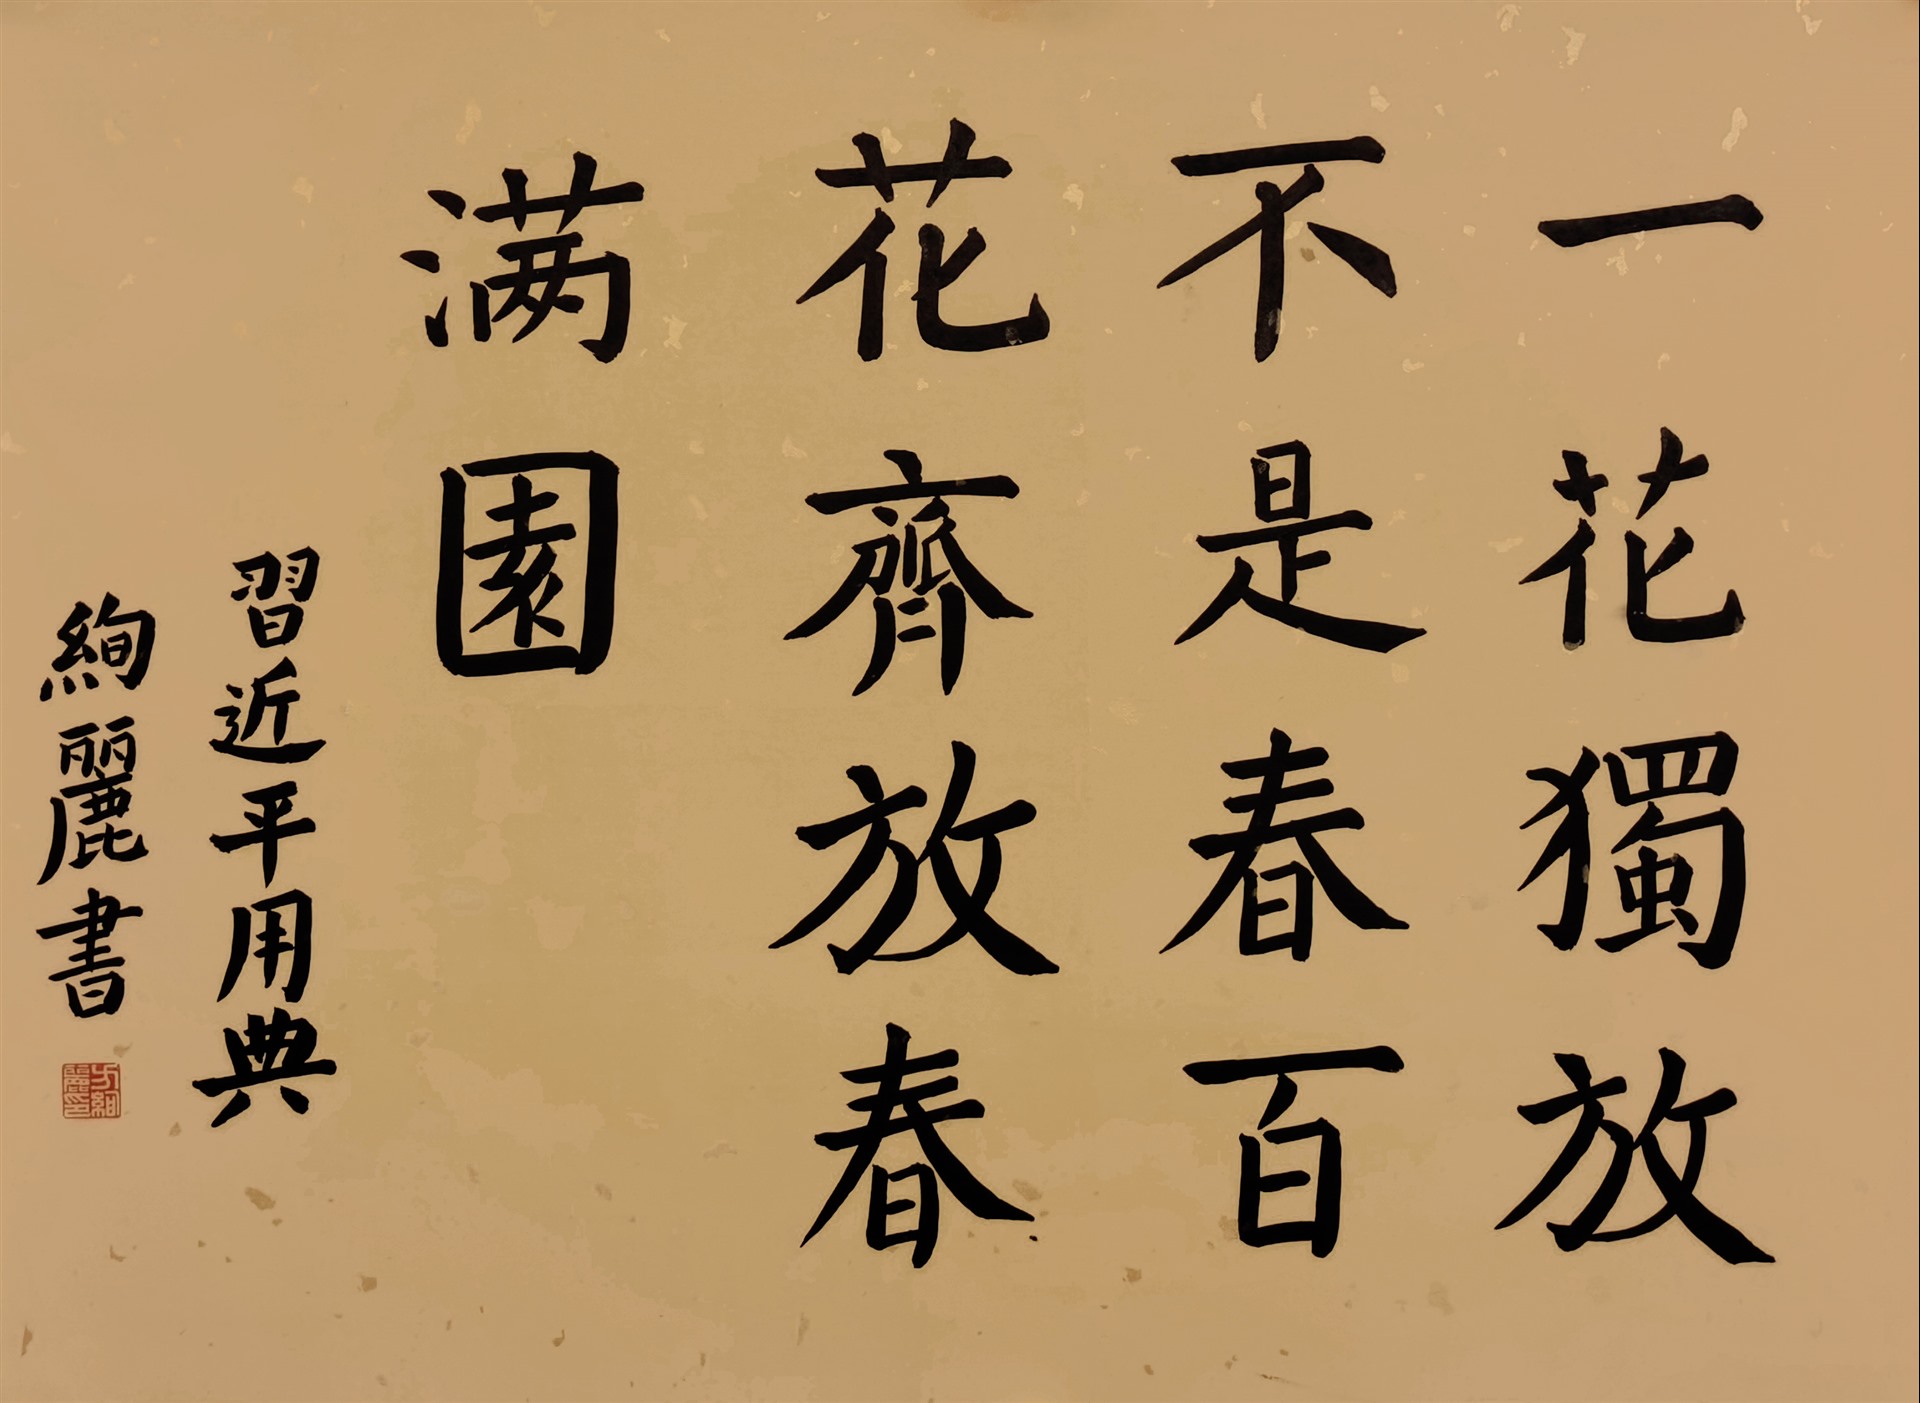 一花獨放
不是春百
花齊放春
满園
習近平用典
絢麗書
方絢麗印